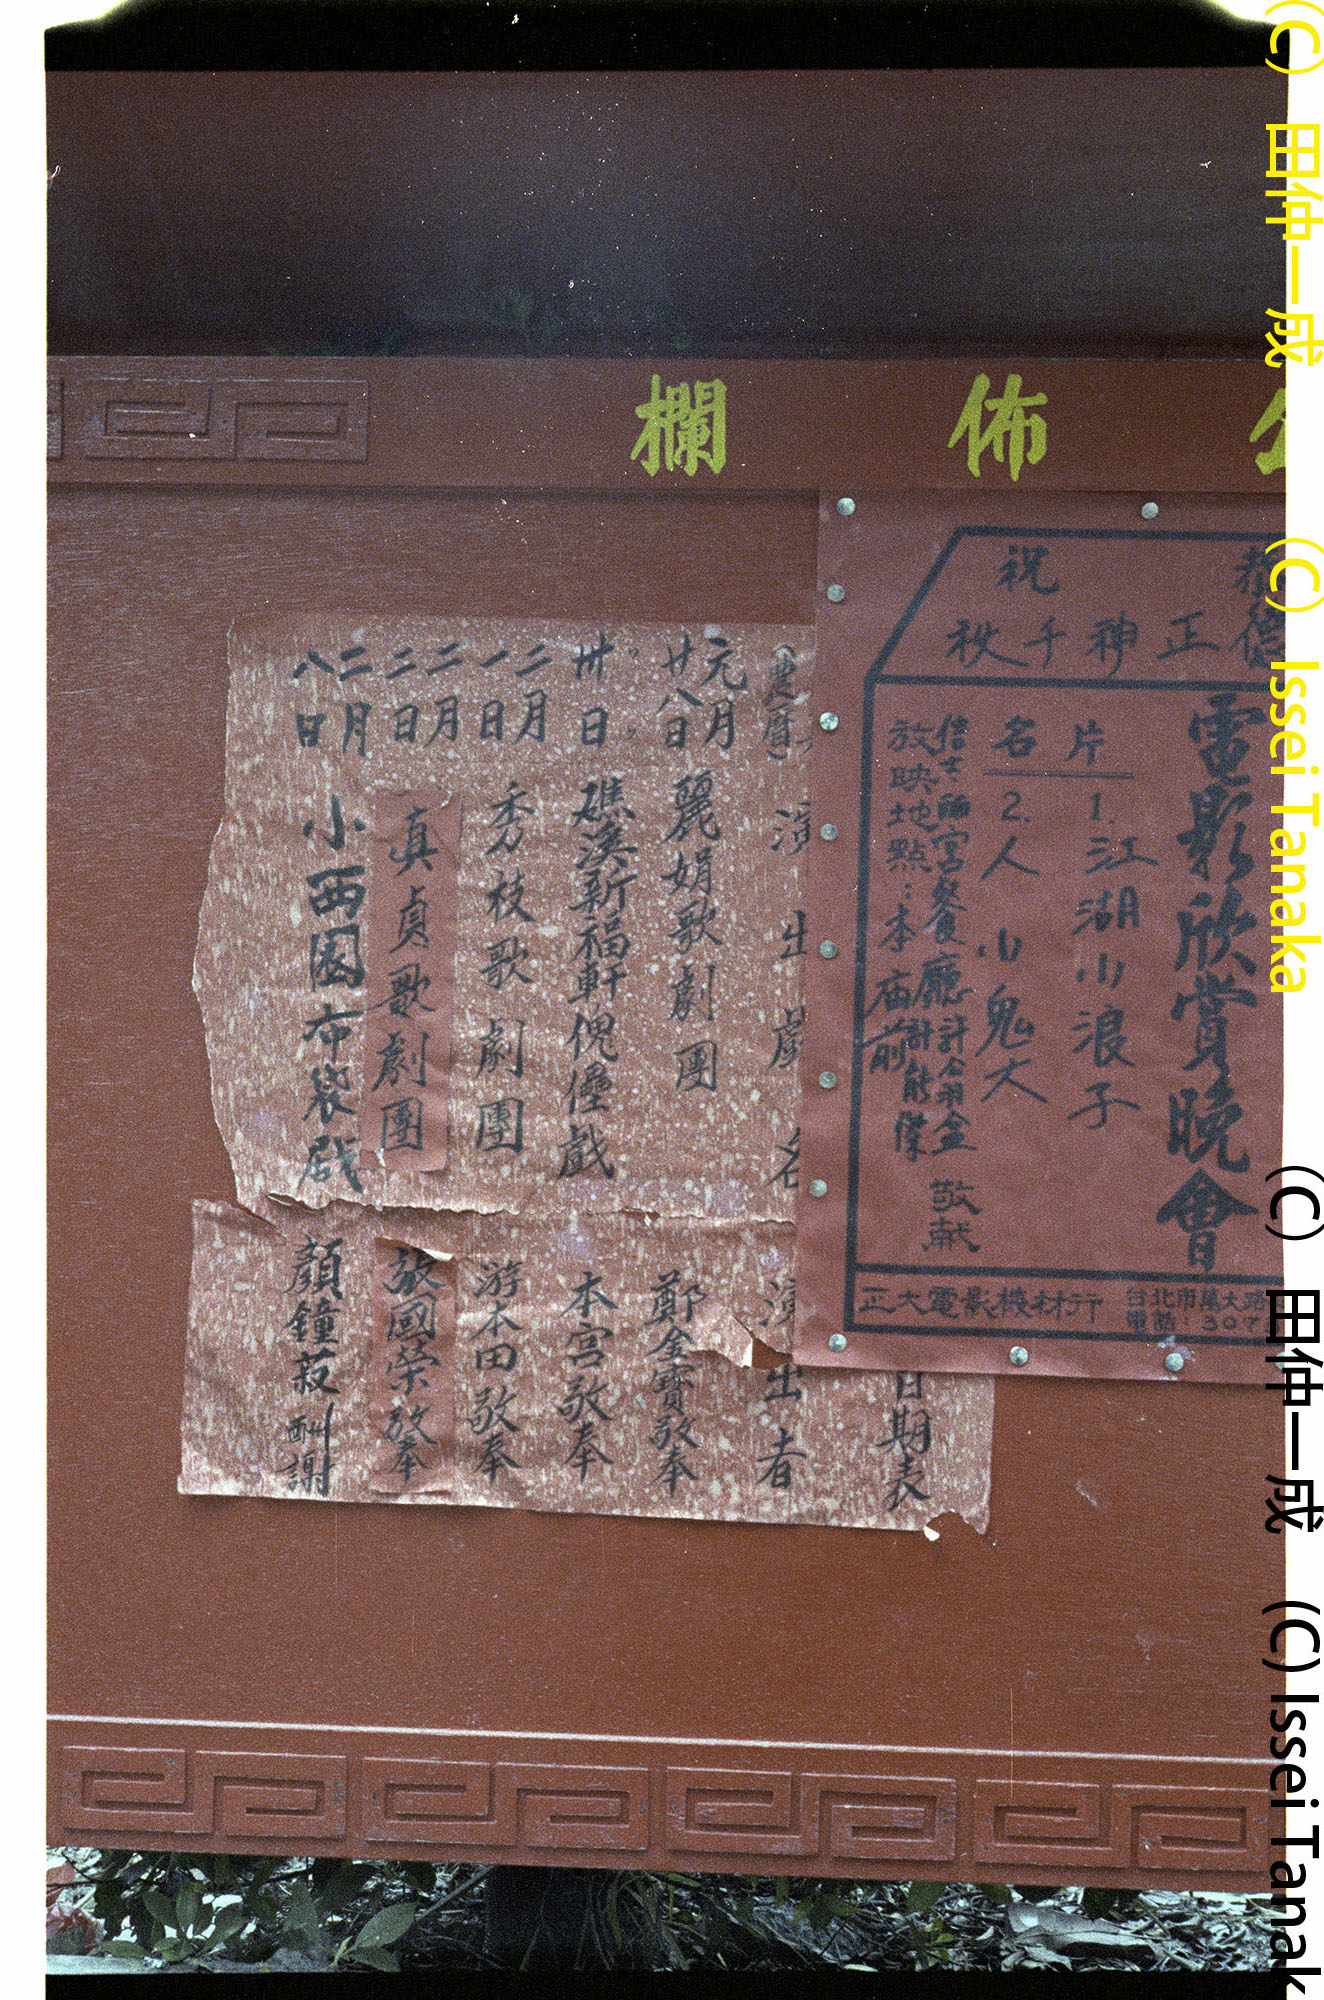 佈欄
祝
正神千秋
電影欣賞晚會
片名
1.江湖小浪子
2.人小鬼大
放映地點:本廟前
敬献
正大電影機材行
台北市萬大路
電話:307
日期表
(農曆)
演出
演出者
元月廿八日 麗娟歌劇團 鄭金寶敬奉
〃〃卅日 礁溪新福軒傀儡戲 本宮敬奉
二月一日 秀枝歌劇團 游本田敬奉
二月二日 真貞歌劇團 國榮敬奉
二月八日 小西園布袋戲 顏鐘 酬謝
(C) 田仲一成 (C) Issei Tanaka
(C) 田仲一成 (C) Issei Tanak